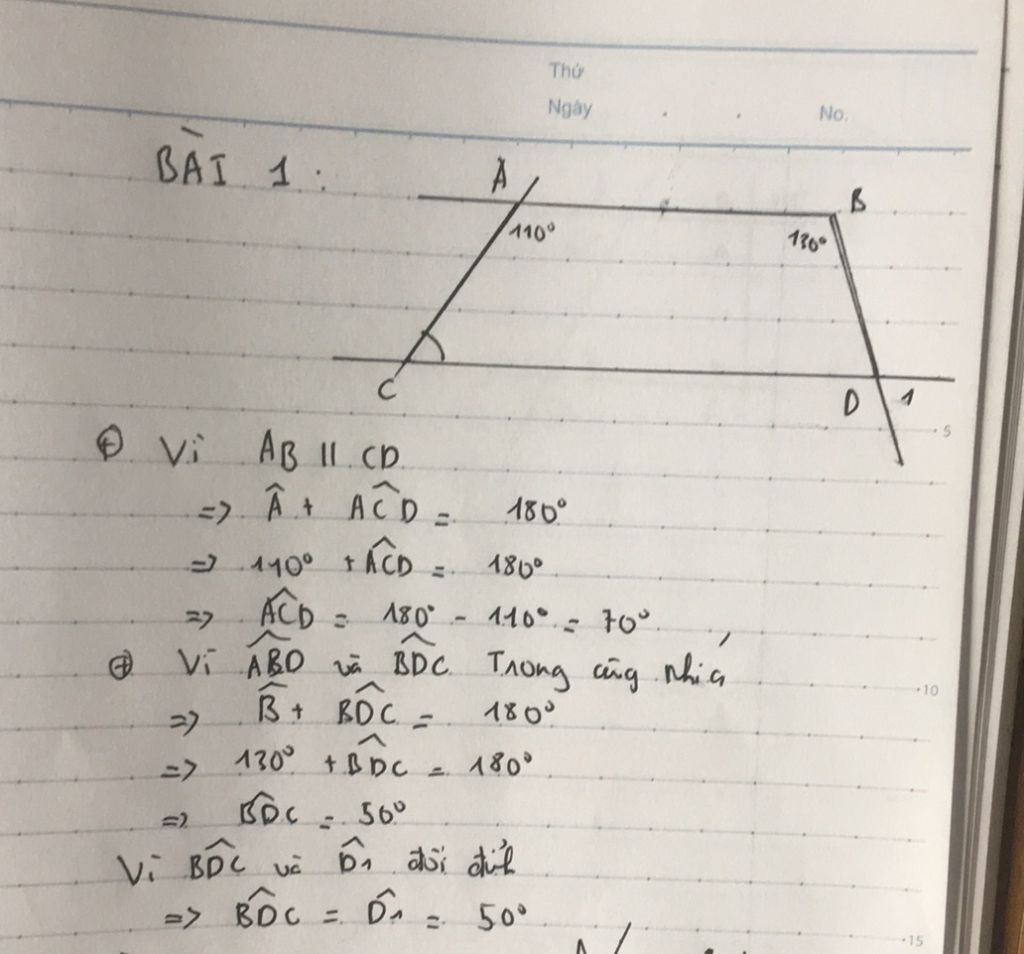 Thứ
Ngày . . No.
BÀI 1 :
A B
110° 130°
C D 1
5
⊕ Vì AB // CD
=> Â + AĈD = 180°
=> 110° + AĈD = 180°
=> AĈD = 180° - 110° = 70°
⊕ Vì AB̂D và BD̂C Trong cùng phía
10
=> B̂ + BD̂C = 180°
=> 130° + BD̂C = 180°
=> BD̂C = 50°
Vì BD̂C và D̂1 đối đỉnh
=> BD̂C = D̂1 = 50°
15